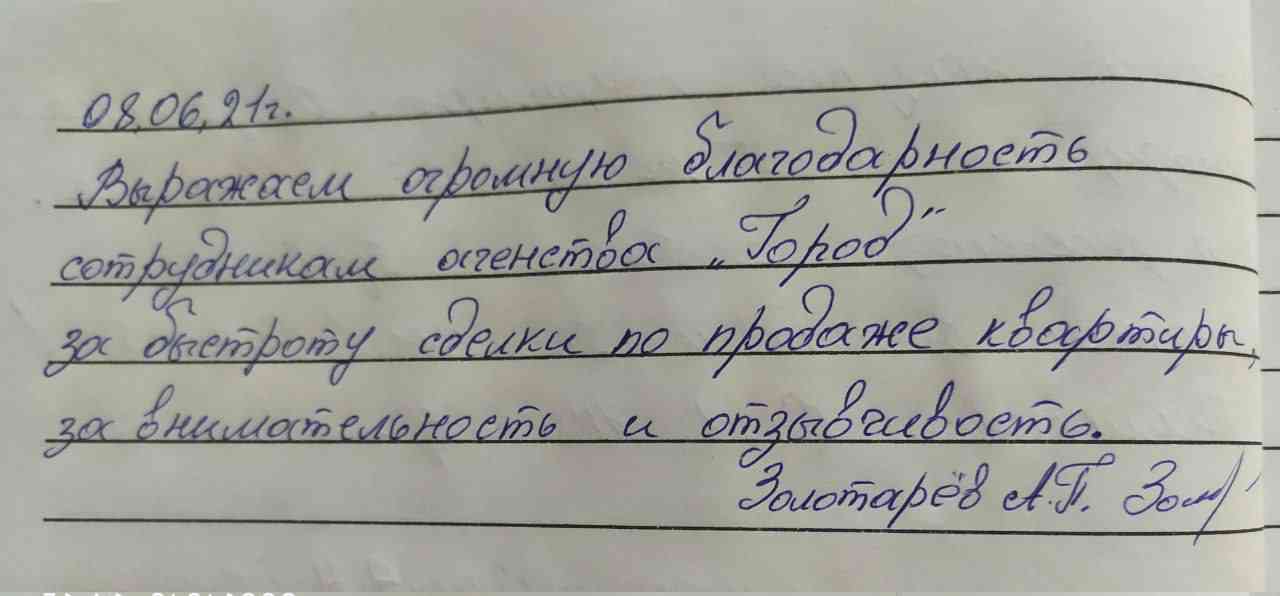 08.06.21г.
Выражаем огромную благодарность
сотрудникам агенства „Город"
за быстроту сделки по продаже квартиры,
за внимательность и отзывчивость.
Золотарёв А.П.